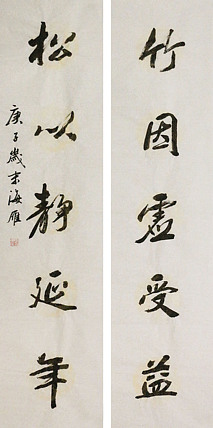 竹因虚受益
松以静延年
庚子岁末海雁